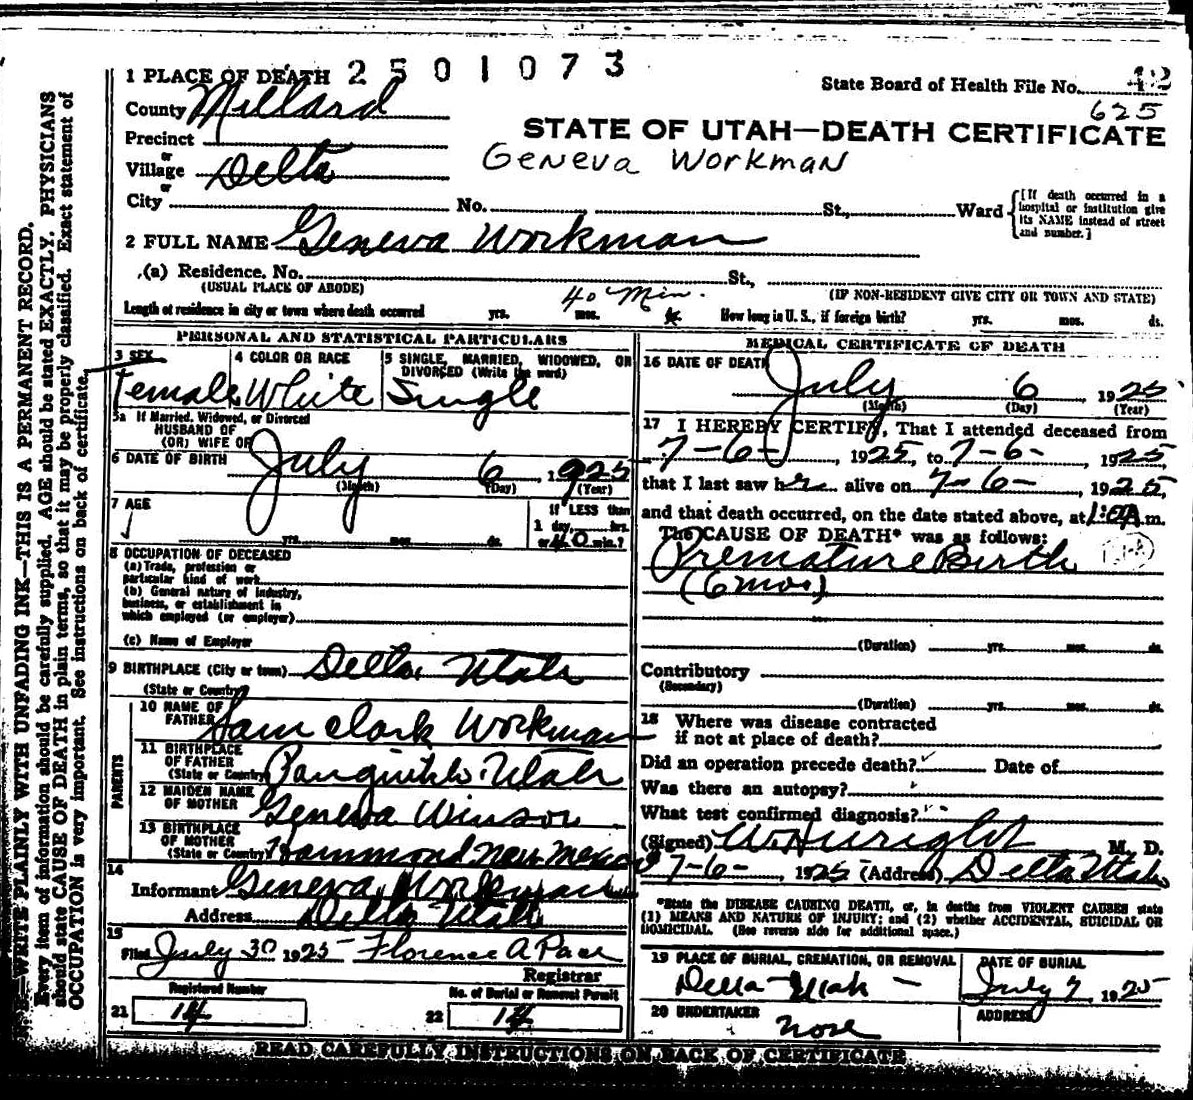 2501073
1 PLACE OF DEATH
State Board of Health File No. 42
625
County Millard
STATE OF UTAH—DEATH CERTIFICATE
Geneva Workman
Precinct
or
Village Delta
or
City No. St., Ward
[If death occurred in a hospital or institution give its NAME instead of street and number.]
2 FULL NAME Geneva Workman
(a) Residence. No. St.,
(USUAL PLACE OF ABODE) (IF NON-RESIDENT GIVE CITY OR TOWN AND STATE)
Length of residence in city or town where death occurred yrs. mos. ds. 40 Min. How long in U. S., if foreign birth? yrs. mos. ds.
PERSONAL AND STATISTICAL PARTICULARS
3 SEX Female
4 COLOR OR RACE White
5 SINGLE, MARRIED, WIDOWED, OR DIVORCED (Write the word) Single
5a If Married, Widowed, or Divorced
HUSBAND OF
(OR) WIFE OF
6 DATE OF BIRTH July 6, 1925
(Month) (Day) (Year)
7 AGE yrs. mos. ds.
If LESS than
1 day, hrs.
or 40 min.?
8 OCCUPATION OF DECEASED
(a) Trade, profession or
particular kind of work
(b) General nature of industry,
business, or establishment in
which employed (or employer)
(c) Name of Employer
9 BIRTHPLACE (City or town) Delta, Utah
(State or Country)
PARENTS
10 NAME OF FATHER Sam Clark Workman
11 BIRTHPLACE OF FATHER
(State or Country) Panguitch Utah
12 MAIDEN NAME OF MOTHER Geneva Winsor
13 BIRTHPLACE OF MOTHER
(State or Country) Hammond New Mexico
14 Informant Geneva Workman
Address Delta Utah
15 Filed July 30 1925 Florence A Pace
Registrar
Registered Number
21 14
No. of Burial or Removal Permit
22 14
MEDICAL CERTIFICATE OF DEATH
16 DATE OF DEATH July 6, 1925
(Month) (Day) (Year)
17 I HEREBY CERTIFY, That I attended deceased from
7-6-, 1925, to 7-6-, 1925,
that I last saw her alive on 7-6-, 1925,
and that death occurred, on the date stated above, at m.
The CAUSE OF DEATH* was as follows:
Premature Birth
(6 mos)
(Duration) yrs. mos. ds.
Contributory
(Secondary)
(Duration) yrs. mos. ds.
18 Where was disease contracted
if not at place of death?
Did an operation precede death? Date of
Was there an autopsy?
What test confirmed diagnosis?
(Signed) M. D.
7-6-, 1925 (Address) Delta Utah
*State the DISEASE CAUSING DEATH, or, in deaths from VIOLENT CAUSES state
(1) MEANS AND NATURE OF INJURY; and (2) whether ACCIDENTAL, SUICIDAL OR
HOMICIDAL. (See reverse side for additional space.)
19 PLACE OF BURIAL, CREMATION, OR REMOVAL Delta Utah
DATE OF BURIAL July 7, 1925
20 UNDERTAKER None
ADDRESS
READ CAREFULLY INSTRUCTIONS ON BACK OF CERTIFICATE
WRITE PLAINLY WITH UNFADING INK—THIS IS A PERMANENT RECORD.
Every item of information should be carefully supplied. AGE should be stated EXACTLY. PHYSICIANS
should state CAUSE OF DEATH in plain terms, so that it may be properly classified. Exact statement of
OCCUPATION is very important. See instructions on back of certificate.